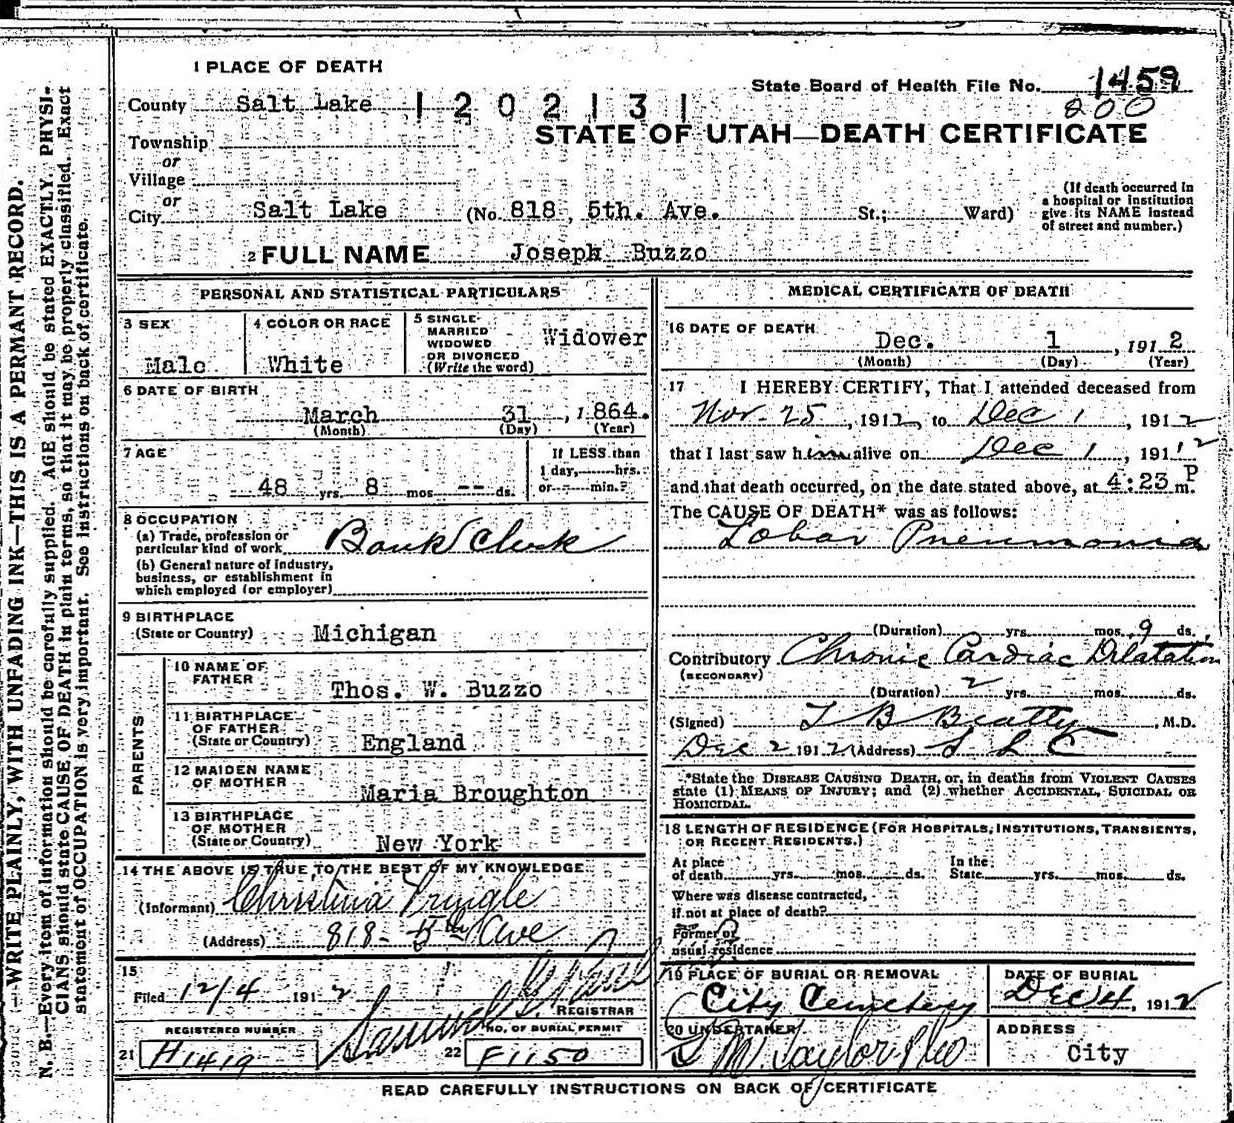 1 PLACE OF DEATH
State Board of Health File No. 1459
County Salt Lake 1202131
200
STATE OF UTAH—DEATH CERTIFICATE
Township
or
Village
or
City Salt Lake (No. 818, 5th. Ave. St.; Ward)
(If death occurred in
a hospital or institution
give its NAME instead
of street and number.)
2 FULL NAME Joseph Buzzo
PERSONAL AND STATISTICAL PARTICULARS
3 SEX Male
4 COLOR OR RACE White
5 SINGLE-
MARRIED
WIDOWED
OR DIVORCED
(Write the word) Widower
6 DATE OF BIRTH
March 31, 1864.
(Month) (Day) (Year)
7 AGE
48 yrs. 8 mos -- ds.
If LESS than
1 day, hrs.
or min.?
8 OCCUPATION
(a) Trade, profession or
particular kind of work Bank Clerk
(b) General nature of industry,
business, or establishment in
which employed (or employer)
9 BIRTHPLACE
(State or Country) Michigan
PARENTS
10 NAME OF
FATHER Thos. W. Buzzo
11 BIRTHPLACE
OF FATHER
(State or Country) England
12 MAIDEN NAME
OF MOTHER Maria Broughton
13 BIRTHPLACE
OF MOTHER
(State or Country) New York
14 THE ABOVE IS TRUE TO THE BEST OF MY KNOWLEDGE
(Informant) Christina Pringle
(Address) 818- 5th Ave
15
Filed 12/4 1912
Samuel G. Paul
REGISTRAR
REGISTERED NUMBER
21 H1419
NO. OF BURIAL PERMIT
22 F1150
MEDICAL CERTIFICATE OF DEATH
16 DATE OF DEATH
Dec. 1, 1912
(Month) (Day) (Year)
17 I HEREBY CERTIFY, That I attended deceased from
Nov. 25, 1912, to Dec 1, 1912
that I last saw him alive on Dec 1, 1912
and that death occurred, on the date stated above, at 4:23 P m.
The CAUSE OF DEATH* was as follows:
Lobar Pneumonia
(Duration) yrs. mos. 9 ds.
Contributory Chronic Cardiac Dilatation
(SECONDARY)
(Duration) 2 yrs. mos. ds.
(Signed) T B Beatty, M.D.
Dec 2 1912 (Address) S L C
*State the DISEASE CAUSING DEATH, or, in deaths from VIOLENT CAUSES
state (1) MEANS OF INJURY; and (2) whether ACCIDENTAL, SUICIDAL OR
HOMICIDAL.
18 LENGTH OF RESIDENCE (FOR HOSPITALS, INSTITUTIONS, TRANSIENTS,
OR RECENT RESIDENTS.)
At place
of death yrs. mos. ds.
In the
State yrs. mos. ds.
Where was disease contracted,
if not at place of death?
Former or
usual residence
19 PLACE OF BURIAL OR REMOVAL
City Cemetery
DATE OF BURIAL
Dec 4, 1912
20 UNDERTAKER
S M Taylor & Co
ADDRESS
City
READ CAREFULLY INSTRUCTIONS ON BACK OF CERTIFICATE
—WRITE PLAINLY, WITH UNFADING INK—THIS IS A PERMANT RECORD.
N. B.—Every item of information should be carefully supplied. AGE should be stated EXACTLY. PHYSI-
CIANS should state CAUSE OF DEATH in plain terms, so that it may be properly classified. Exact
statement of OCCUPATION is very important. See instructions on back of certificate.